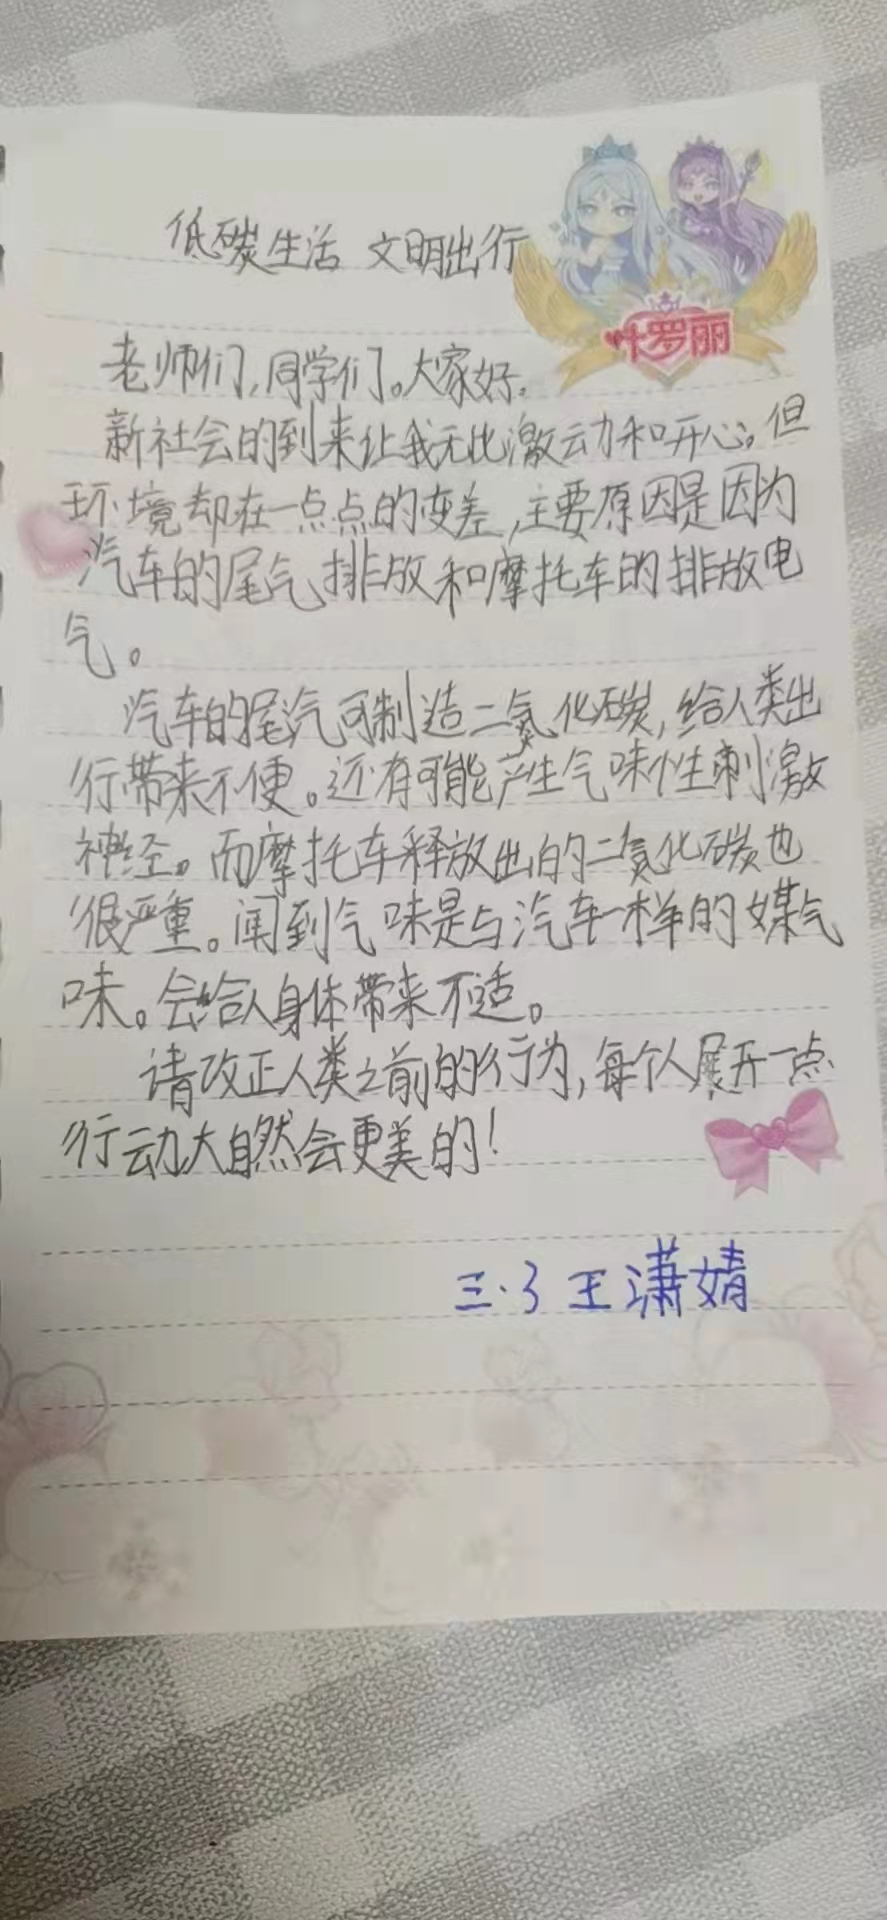 低碳生活 文明出行
叶罗丽
老师们,同学们。大家好.
新社会的到来让我无比激动和开心。但
环境却在一点点的变差,主要原因是因为
汽车的尾气排放和摩托车的排放电
气。
汽车的尾汽可制造二氮化碳,给人类出
行带来不便。还有可能产生气味性刺激
神经。而摩托车释放出的二氮化碳也
很严重。闻到气味是与汽车一样的媒气
味。会给人身体带来不适。
请改正人类之前的行为,每个人展开一点
行动大自然会更美的!
三.3 王潇婧